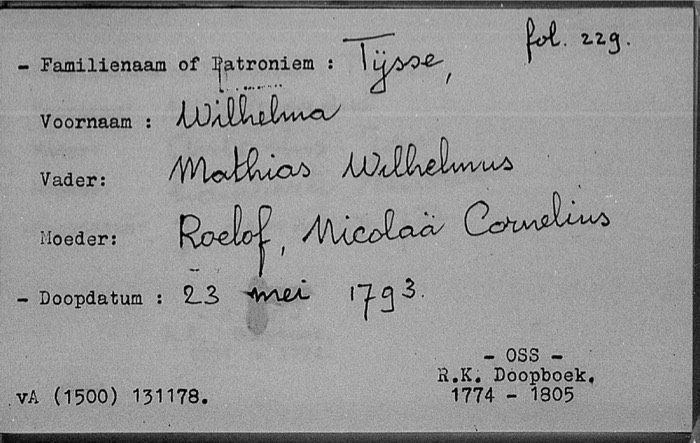 fol. 229.
- Familienaam of Patroniem : Tÿsse,
Voornaam : Wilhelma
Vader: Mathias Wilhelmus
Moeder: Roelof, Nicolaä Cornelius
- Doopdatum : 23 mei 1793.
- OSS -
R.K. Doopboek.
vA (1500) 131178.
1774 - 1805